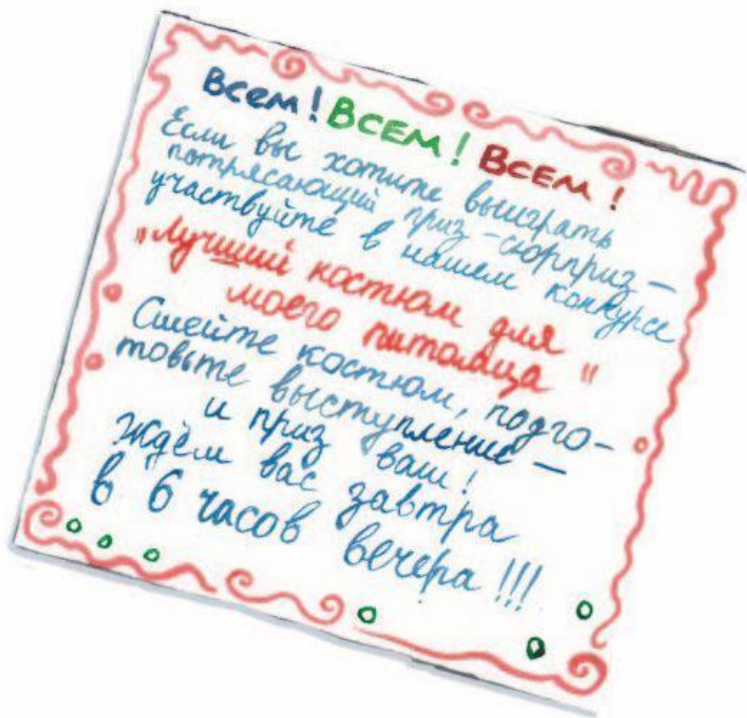 Всем! ВСЕМ! ВСЕМ!
Если вы хотите выиграть
потрясающий приз-сюрприз –
участвуйте в нашем конкурсе
"Лучший костюм для
моего питомца"
Сшейте костюм, подго-
товьте выступление –
и приз ваш!
Ждём вас завтра
в 6 часов вечера!!!